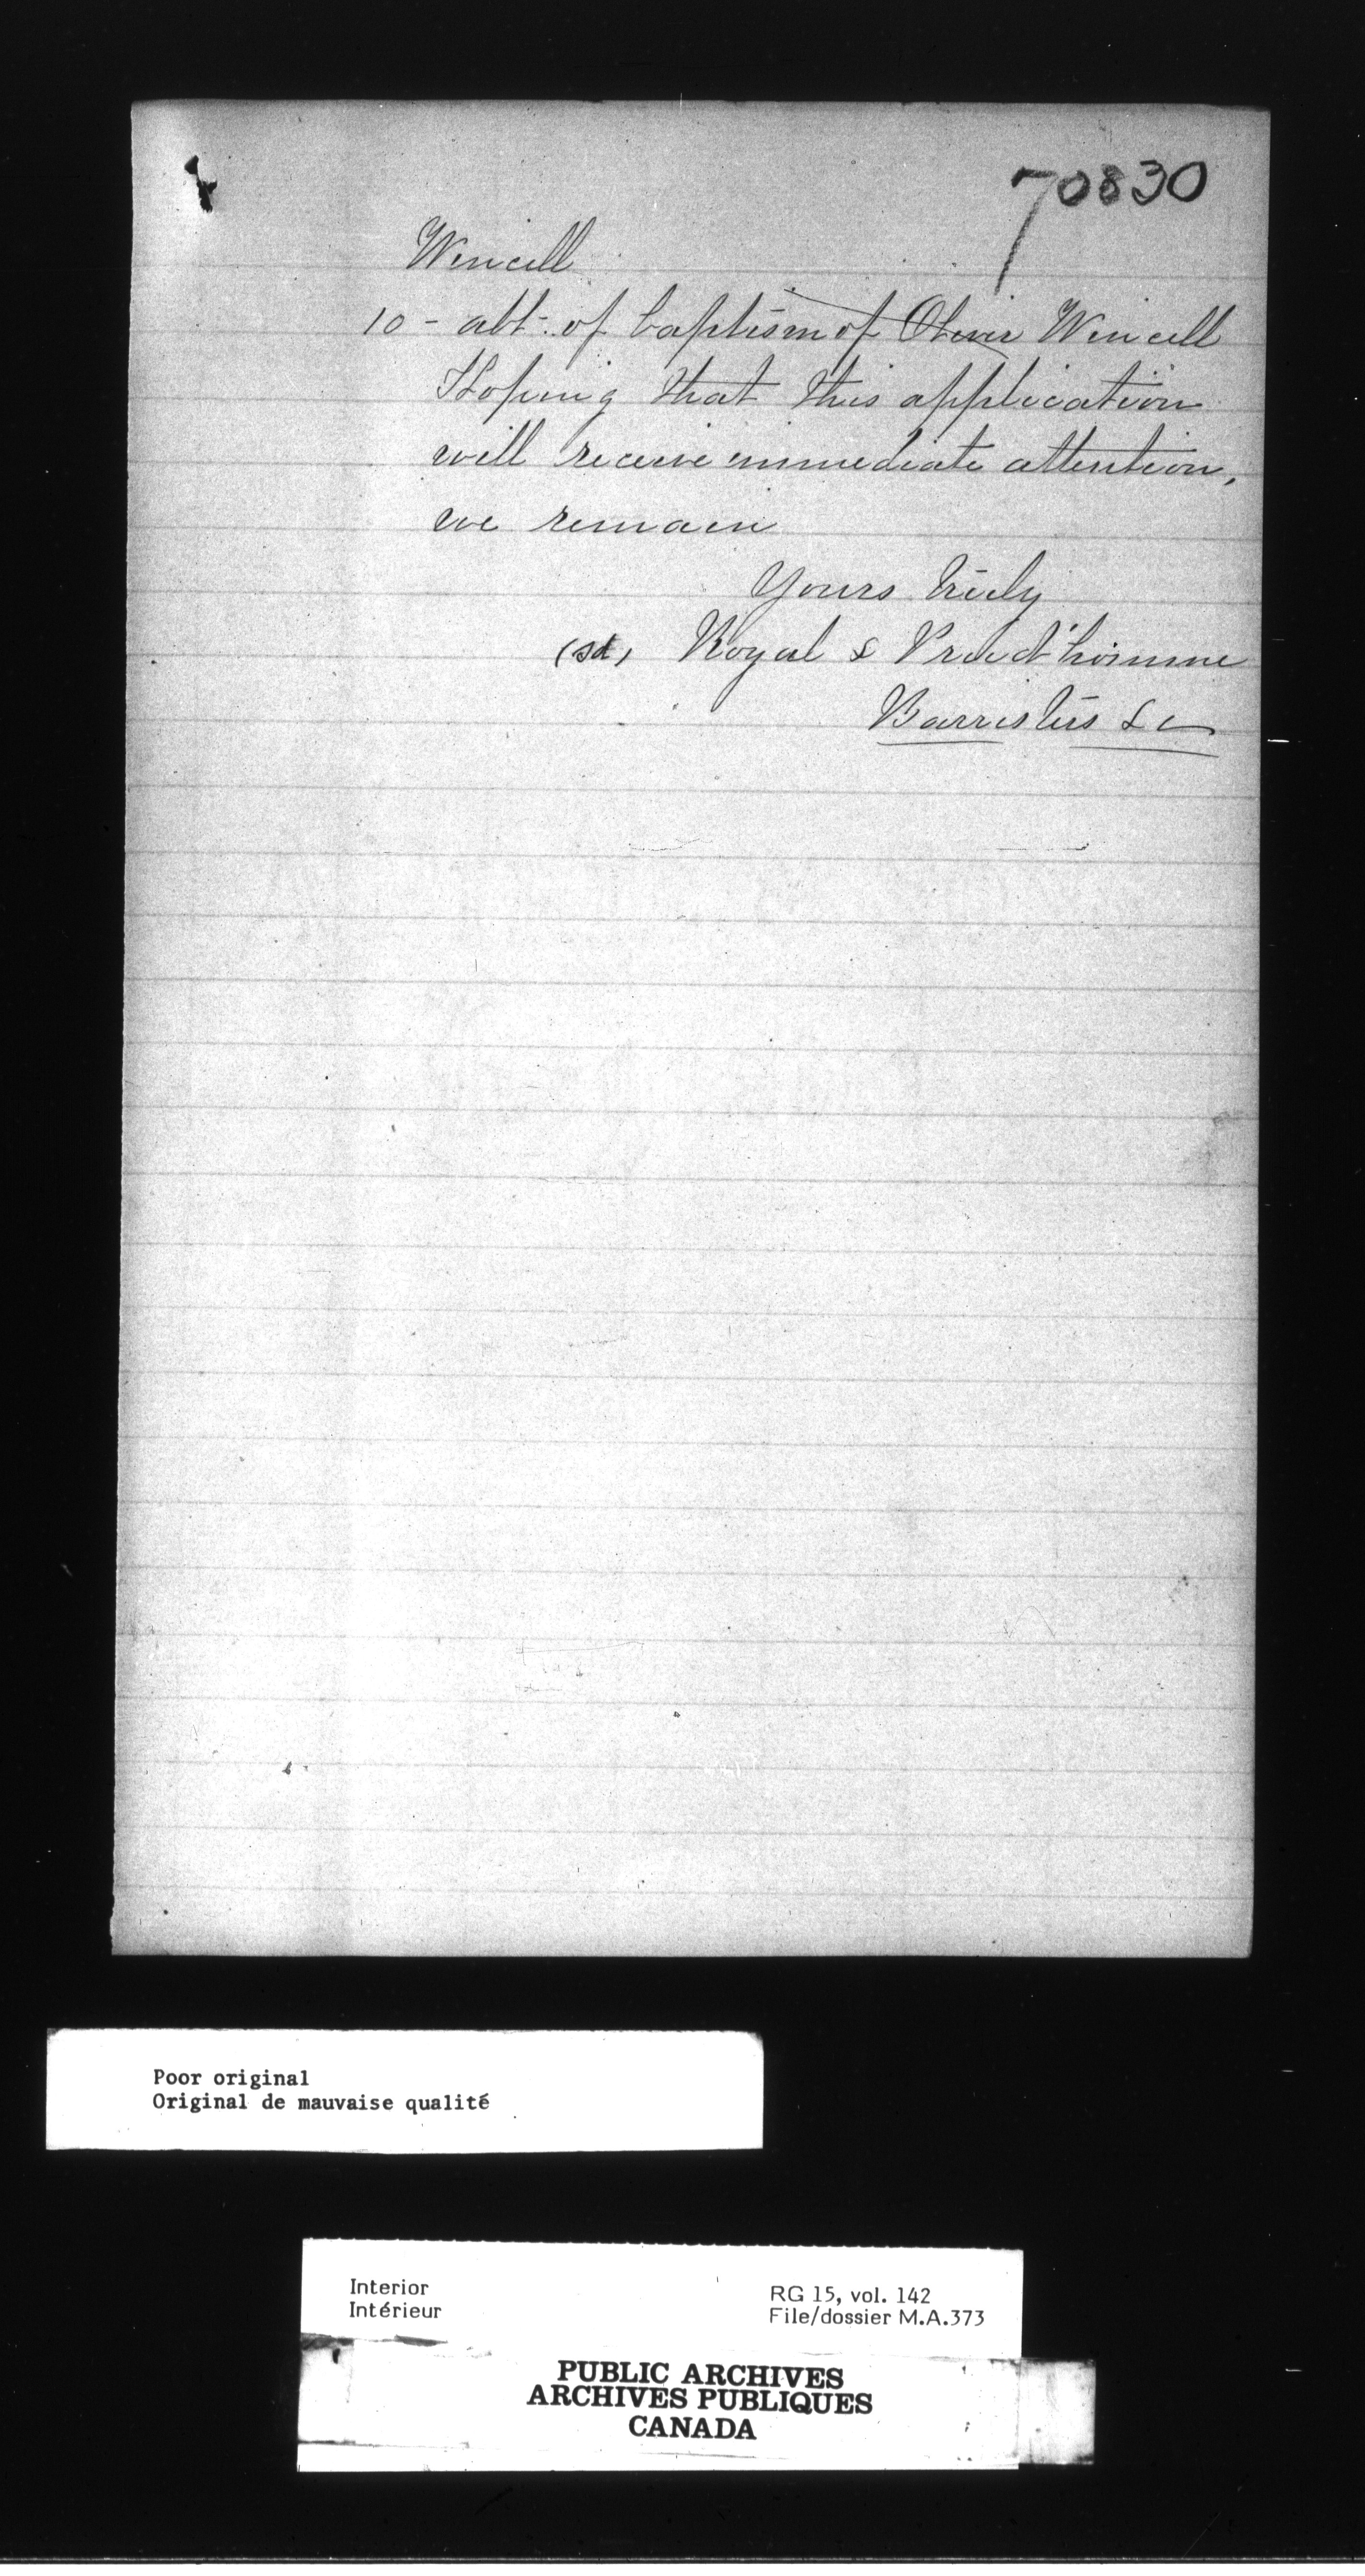 70830
Wincell
10 - abt. of baptism of Oliver Wincell
Hoping that this application
will receive immediate attention,
we remain
Yours truly
(sd) Royal & Prud'homme
Barristers &c
Poor original
Original de mauvaise qualité
Interior
Intérieur
RG 15, vol. 142
File/dossier M.A.373
PUBLIC ARCHIVES
ARCHIVES PUBLIQUES
CANADA